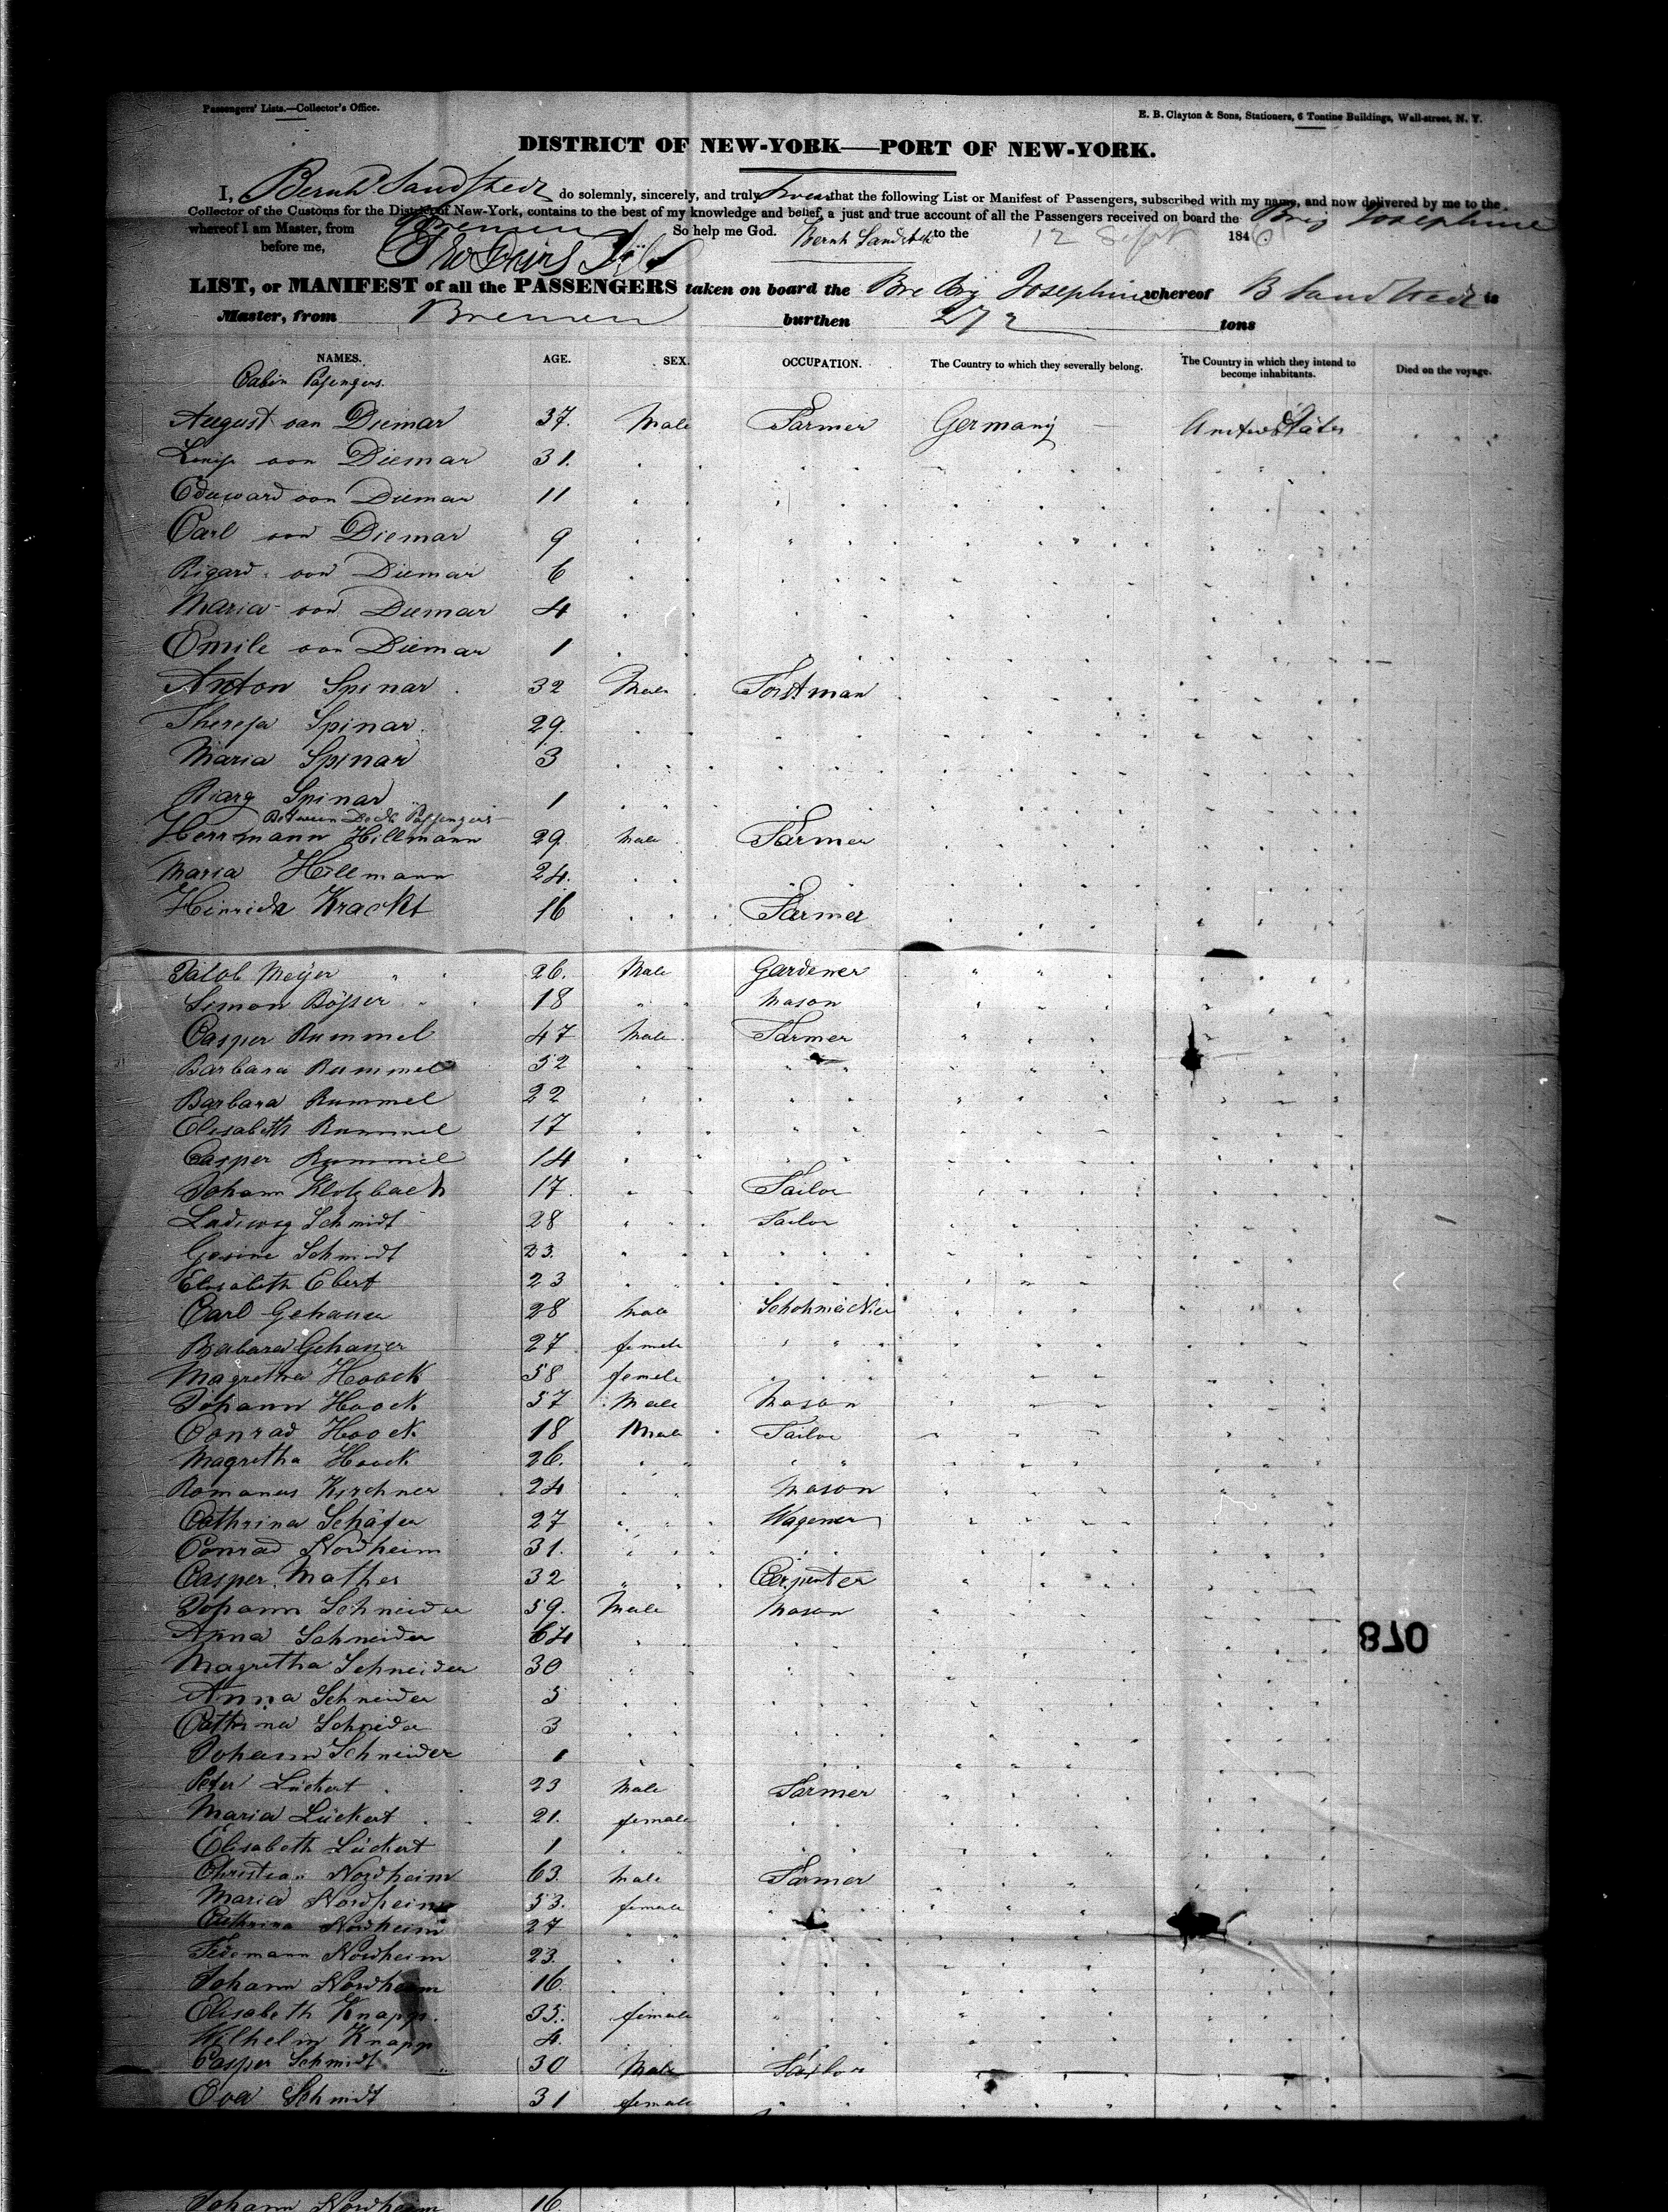 Passengers' Lists.—Collector's Office.
E. B. Clayton & Sons, Stationers, 6 Tontine Buildings, Wall-street, N. Y.
DISTRICT OF NEW-YORK—PORT OF NEW-YORK.
I, Bernhd Sandstedt do solemnly, sincerely, and truly swear that the following List or Manifest of Passengers, subscribed with my name, and now delivered by me to the
Collector of the Customs for the District of New-York, contains to the best of my knowledge and belief, a just and true account of all the Passengers received on board the Brig Josephine
whereof I am Master, from Bremen So help me God. Bernh Sandstedt to the 12 Sept 1846
before me,
LIST, or MANIFEST of all the PASSENGERS taken on board the Bre Brig Josephine whereof B Sandstedt is
Master, from Bremen burthen 272 tons
NAMES. AGE. SEX. OCCUPATION. The Country to which they severally belong. The Country in which they intend to become inhabitants. Died on the voyage.
Cabin Passengers.
August von Diemar 37. Male Farmer Germany United States
Louise von Diemar 31.
Eduward von Diemar 11
Carl von Diemar 9
Rigard von Diemar 6
Maria von Diemar 4
Emile von Diemar 1
Anton Spinar 32 Male Forstman
Theresa Spinar 29.
Maria Spinar 3
Spinar 1
Between Deck Passengers
Herrmann Hillmann 29. Male Farmer
Maria Hillmann 24.
Hinrich Kracht 16 Farmer
Jacob Meyer 26. Male Gardener
Simon Bösser 18 Mason
Casper Rummel 47 Male Farmer
Barbara Rummel 52
Barbara Rummel 22
Elisabeth Rummel 17
Casper Rummel 14
Johann Klotzbach 17. Tailor
Ludiwig Schmidt 28 Tailor
Gesine Schmidt 23.
Elisabeth Ebert 23
Carl Gehauer 28 Male Schohmacker
Barbara Gehauer 27 female
Magretha Hoock 58 female
Johann Hoock 57 Male Mason
Conrad Hoock 18 Male Tailor
Magretha Hoock 26.
Romanus Kirchner 24 Mason
Cathrina Schäfer 27 Wagener
Conrad Nordheim 31.
Casper Mather 32 Carpenter
Johann Schneider 59. Male Mason
Anna Schneider 64
Magretha Schneider 30
Anna Schneider 5
Cathrina Schneider 3
Johann Schneider 1
Peter Lückert 23 Male Farmer
Maria Lückert 21. female
Elisabeth Lückert 1
Christian Nordheim 63. Male Farmer
Maria Nordheim 53. female
Cathrina Nordheim 27
Nordheim 23.
Johann Nordheim 16.
Elisabeth Knapp. 35. female
Wilhelm Knapp 4.
Casper Schmidt 30 Male Tailor
Eva Schmidt 31 female
078
Johann Nordheim 16.